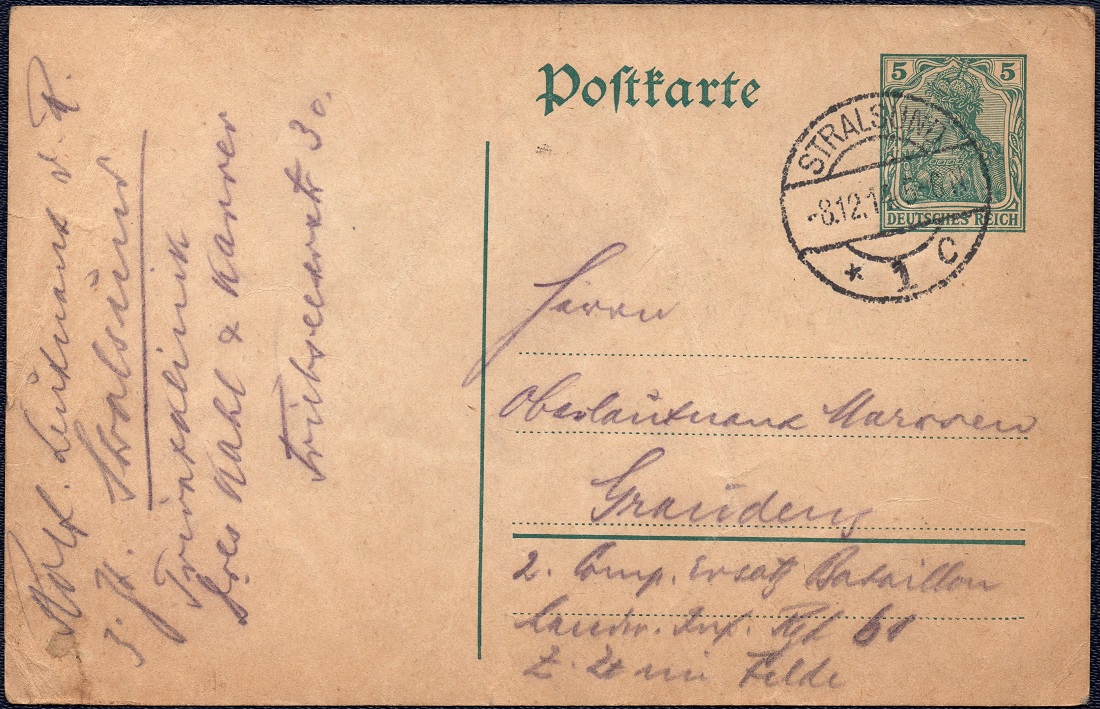 Postkarte
5 5
DEUTSCHES REICH
STRALSUND
-8.12.14
* 1 c
Herrn
Oberleutnant Marssen
Graudenz
2. Comp. Ersatz Bataillon
Landw. Inf. Rgt 61
z. Zt im Felde
Leutnant d. R.
z. Zt. Stralsund
Privatklinik
Kahl &
Tribseerstr 30.